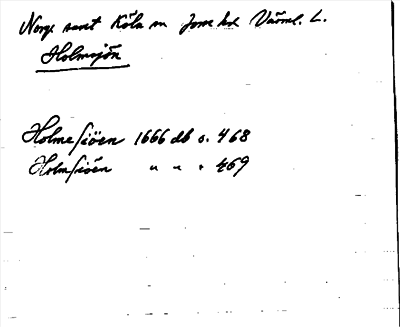 Norge samt Köla sn Jösse hd Värml. L.
Holmsjön
Holmesiöen 1666 db s. 468
Holmsiön " " " 469